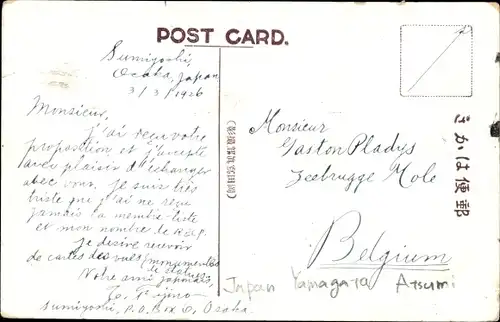 POST CARD.
Sumiyoshi,
Osaka, Japan
3/3/1926
Monsieur,
J'ai reçu votre
proposition et j'accepte
avec plaisir d'échanger
avec vous. Je suis très
triste que j'ai ne reçu
jamais la membre-liste
et mon nombre de
Je desire recevoir
de cartes des vues (monuments
et de statues)
Votre ami japonais,
Sumiyoshi, P.O. Box 2, Osaka.
Monsieur
Gaston Pladys
Zeebrugge Mole
Belgium
Japan Yamagata Atsumi
きかは便郵